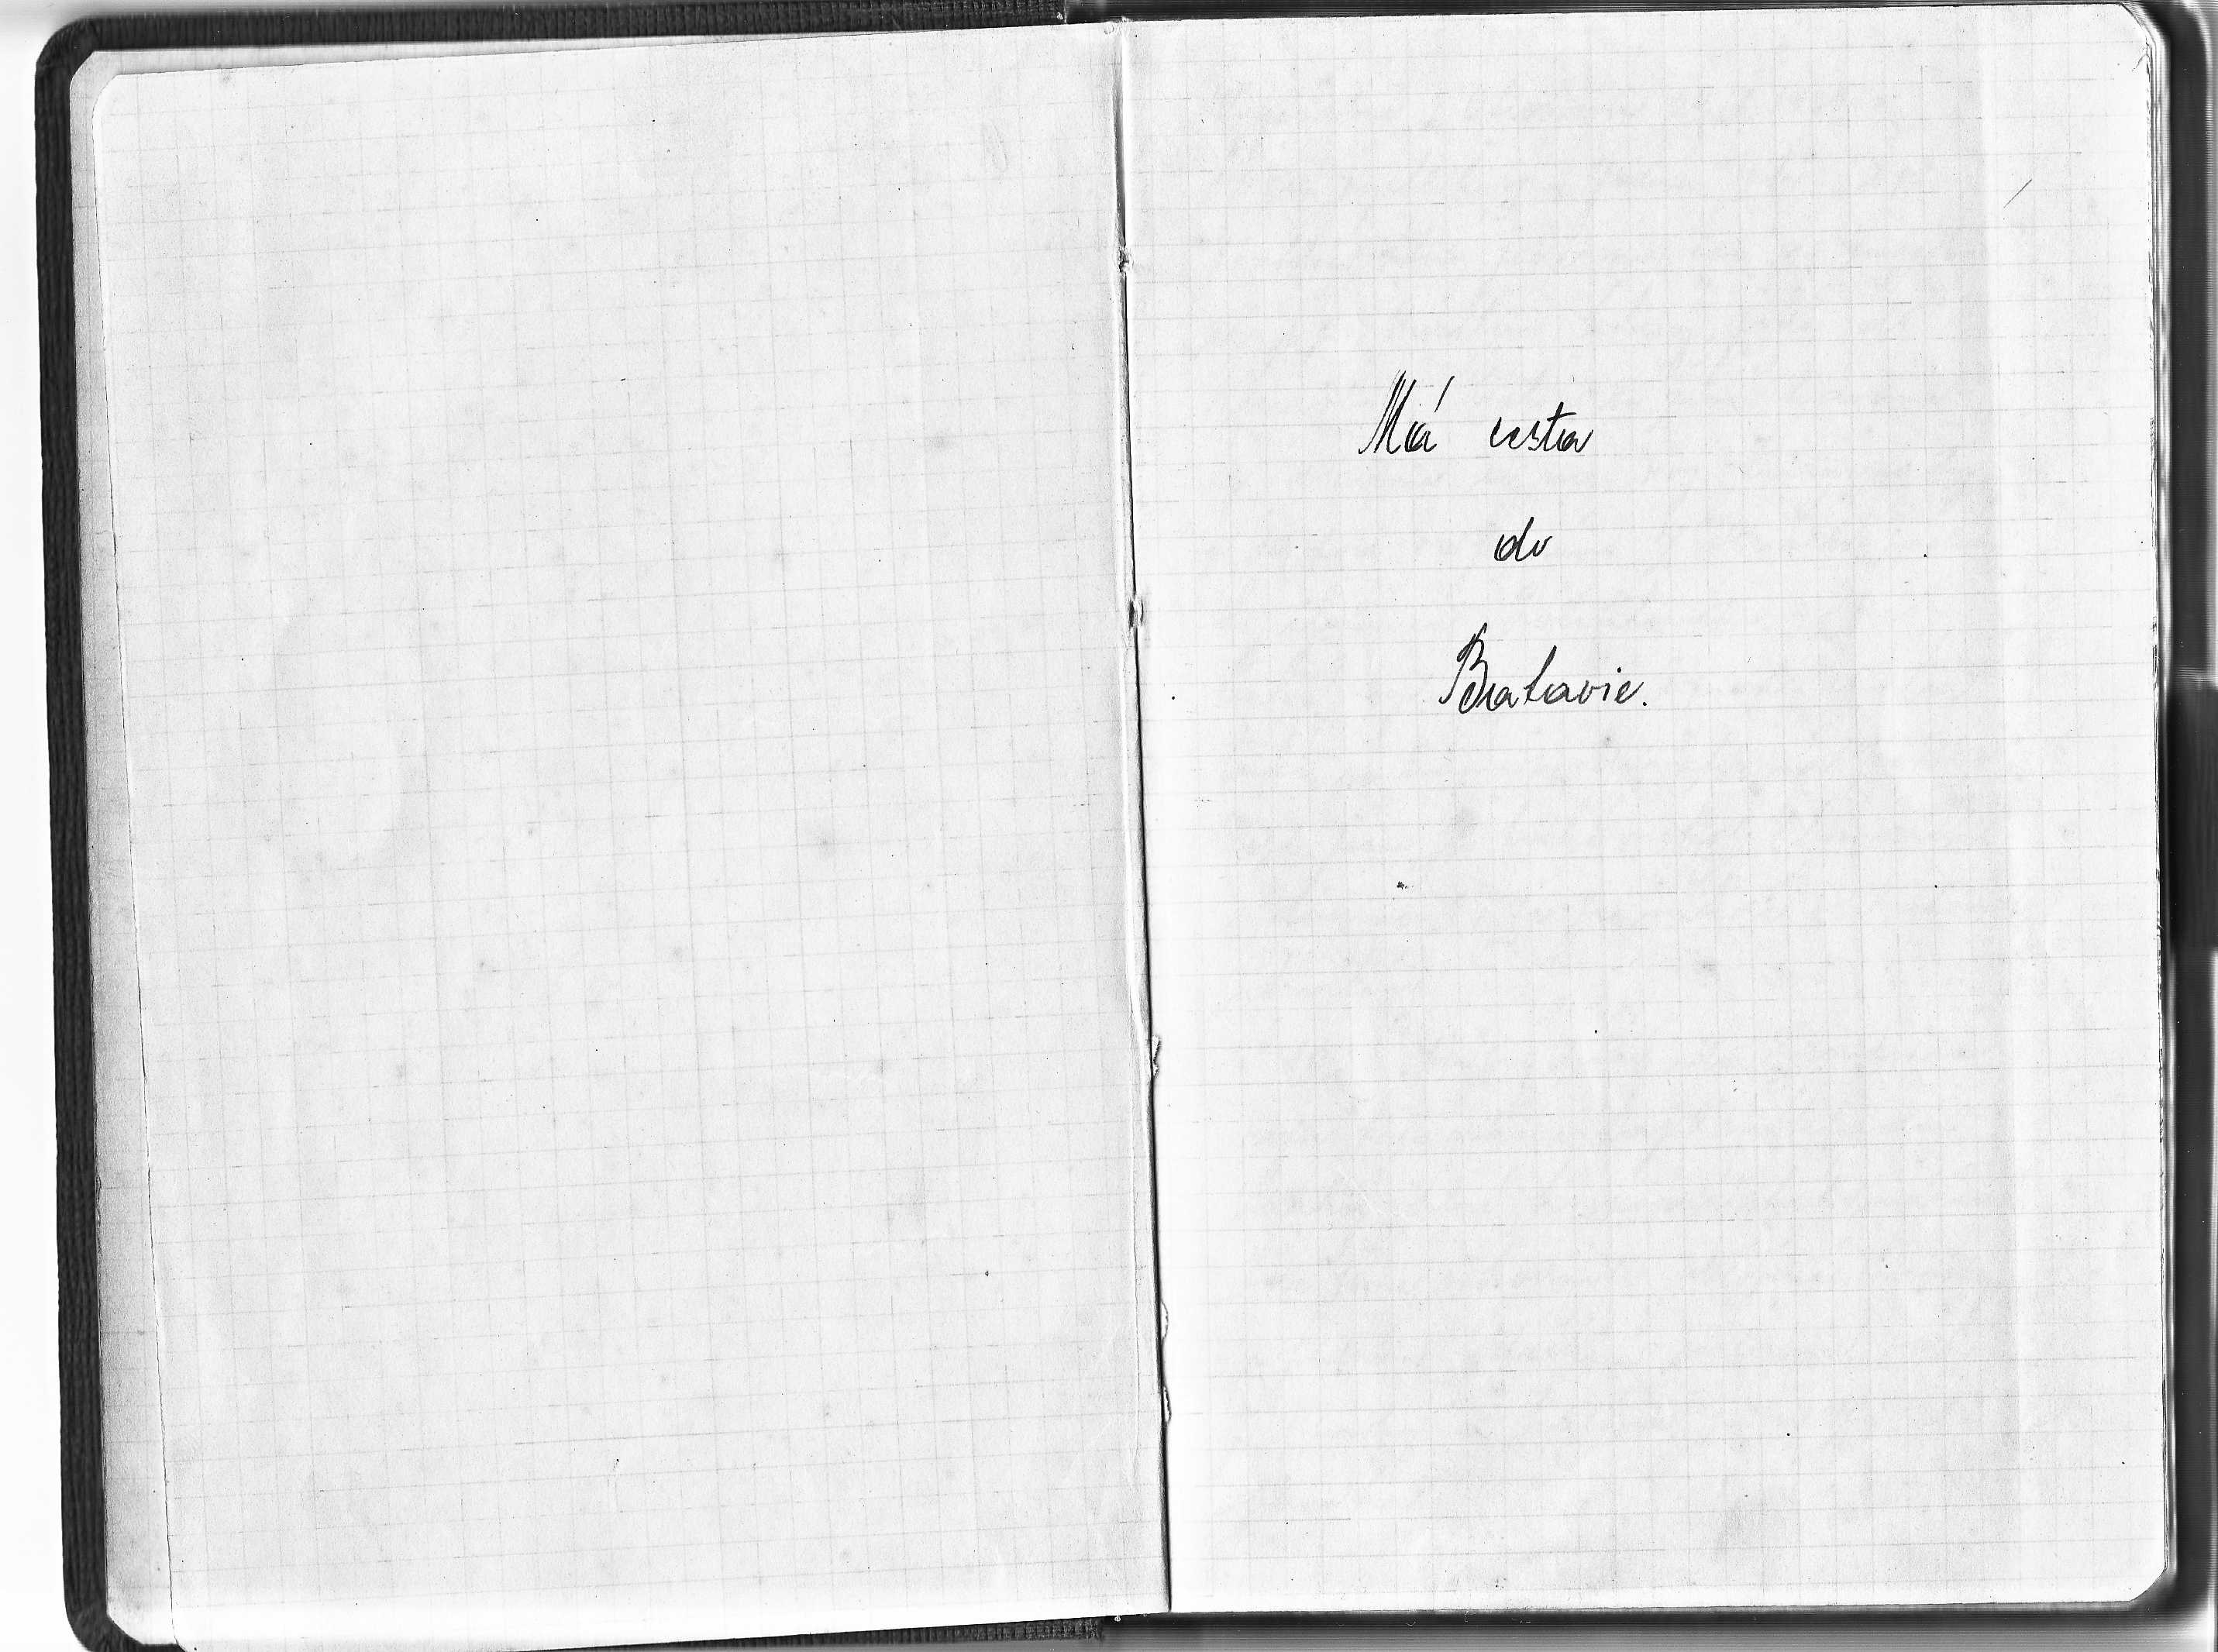 Má cesta
do
Batavie.